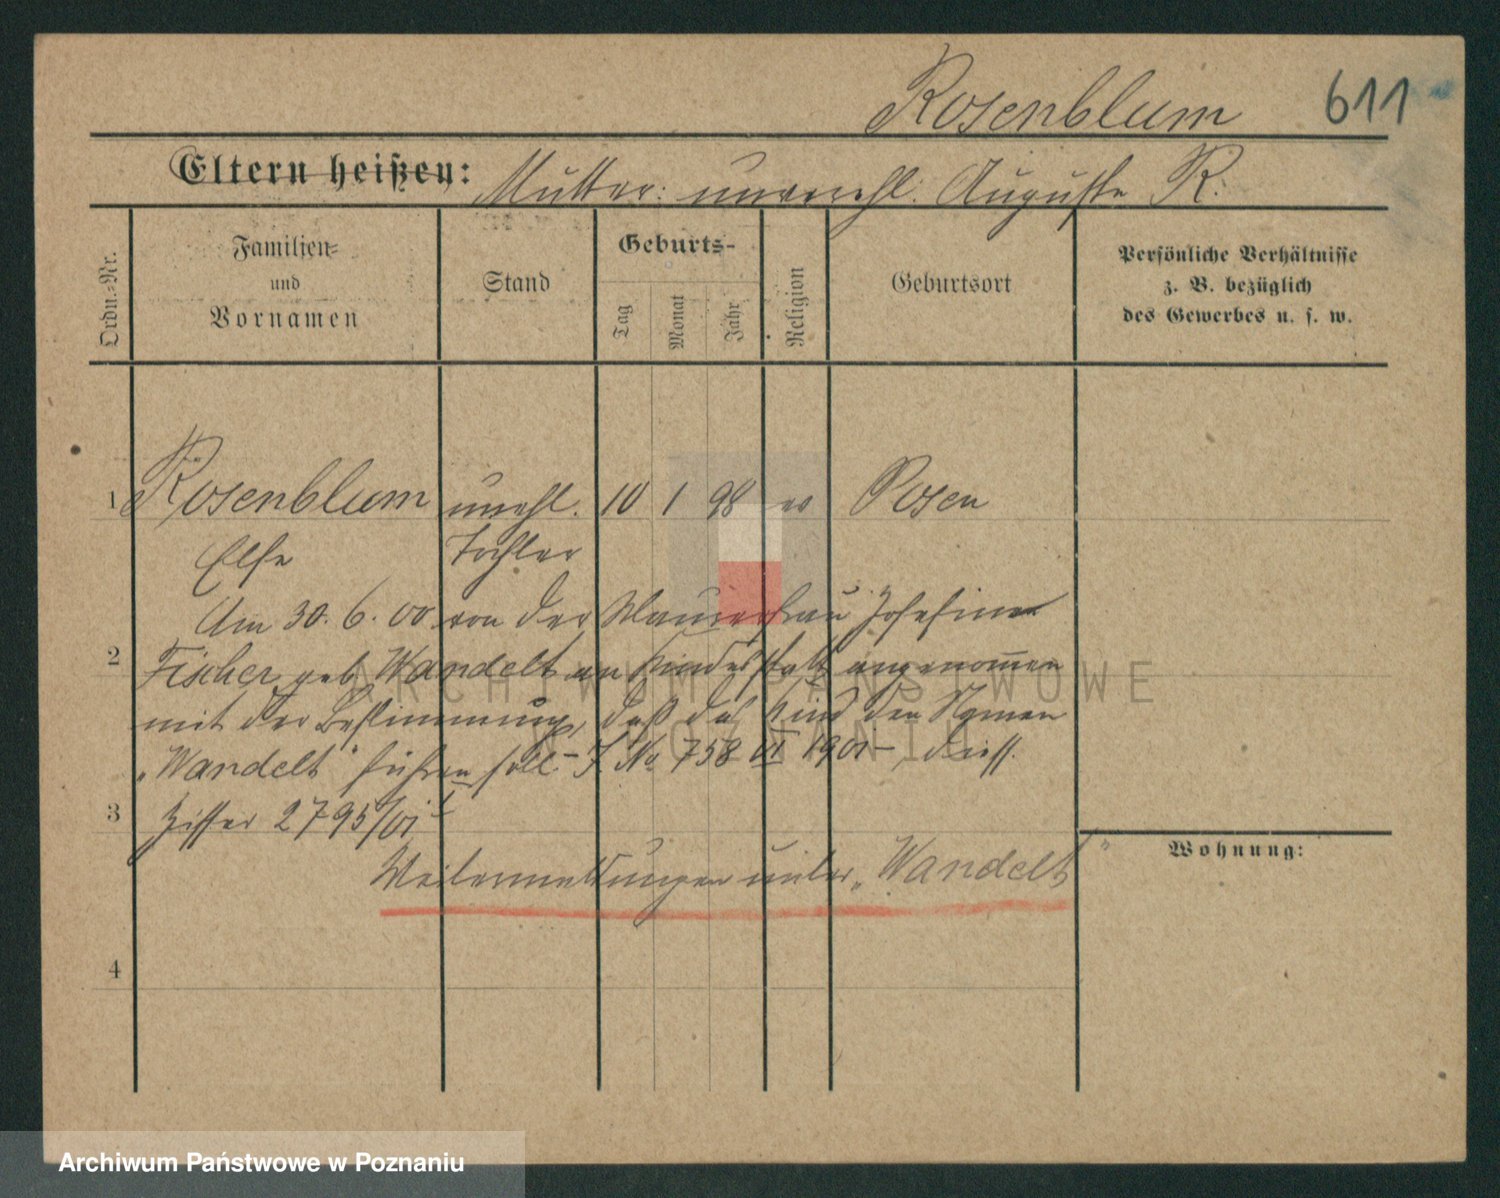 Rosenblum 611
Eltern heißen: Mutter: unverehl. Auguste R.
Ordn.-Nr.
Familien-
und
Vornamen
Stand
Geburts-
Tag
Monat
Jahr
Religion
Geburtsort
Persönliche Verhältnisse
z. B. bezüglich
des Gewerbes u. s. w.
1 Rosenblum unehl. 10 1 98 ev Posen
Else Tochter
Am 30. 6. 00 von der Josefine
2 Fischer geb. Wandelt an Kindesstatt angenommen
mit der Bestimmung, daß das Kind den Namen
„Wandelt" führen soll. – J. No 758 VI 1901 –,
3 Ziffer 2795/01
Weitermeldungen unter „Wandelt"
Wohnung:
4
ARCHIWUM PAŃSTWOWE
W POZNANIU
Archiwum Państwowe w Poznaniu